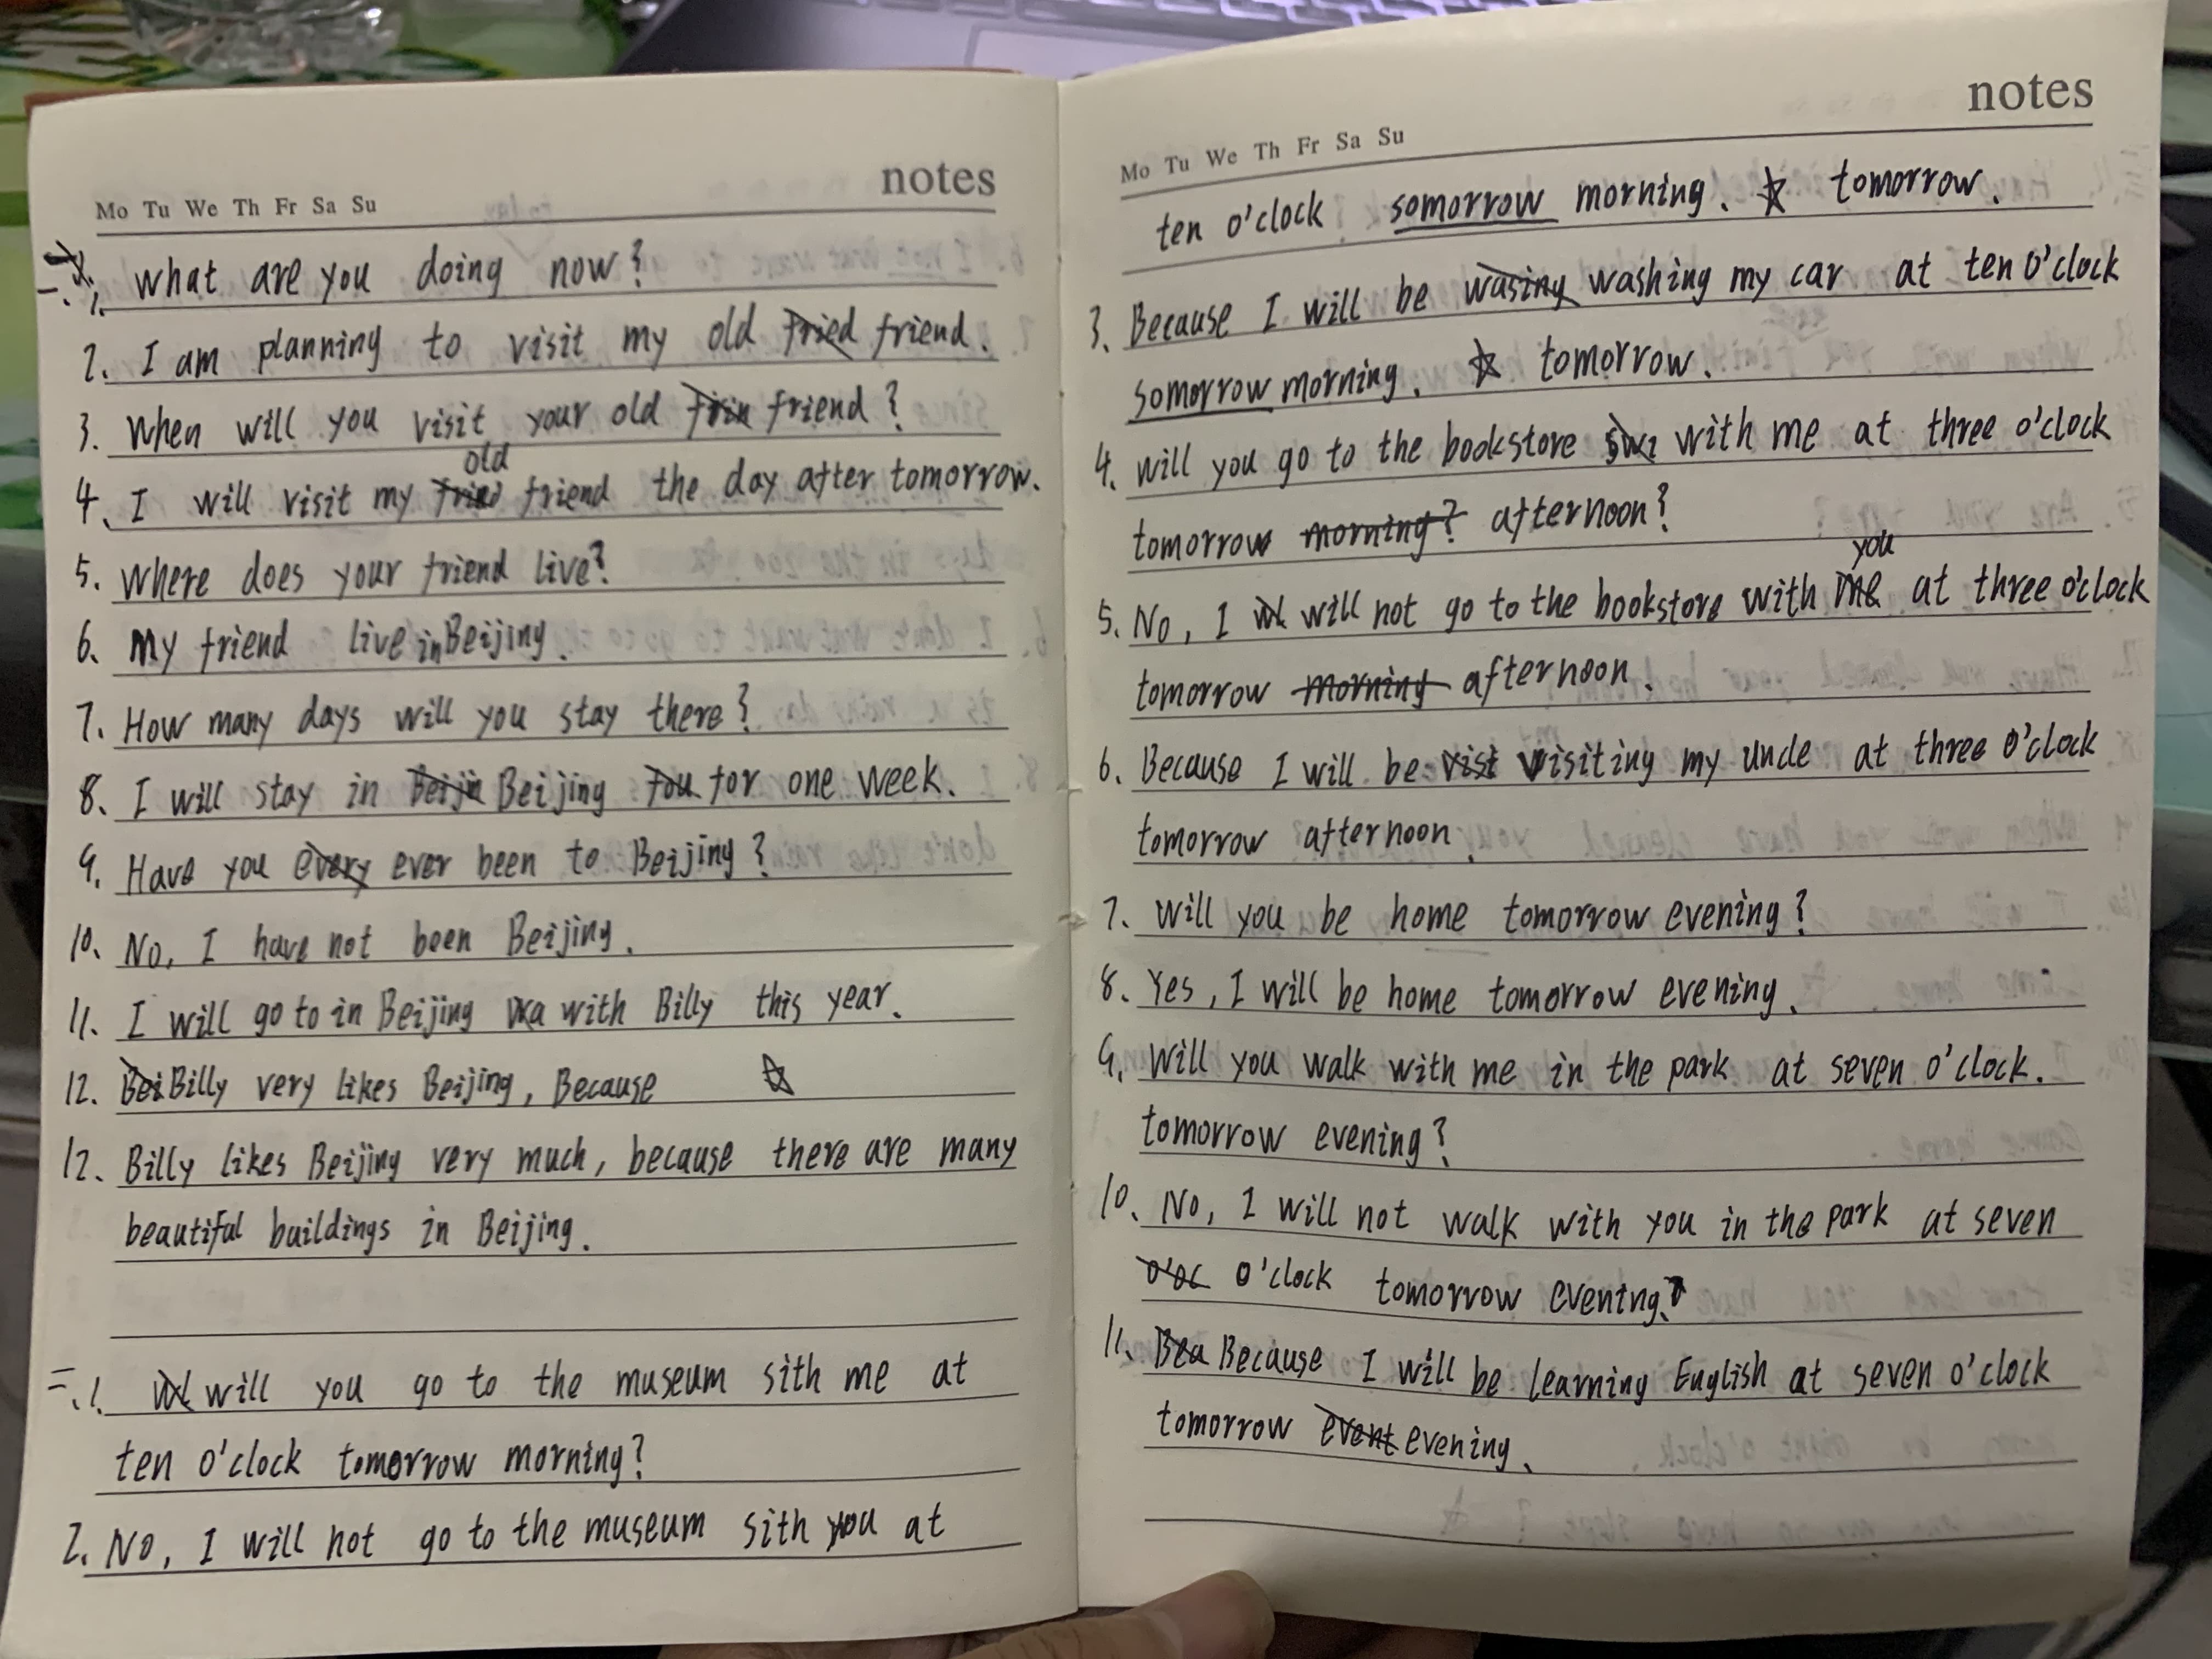 notes
Mo Tu We Th Fr Sa Su
一. 1. What are you doing now?
2. I am planning to visit my old fried friend.
3. When will you visit your old frin friend?
old
4. I will visit my fried friend the day after tomorrow.
5. Where does your friend live?
6. My friend live in Beijing.
7. How many days will you stay there?
8. I will stay in Beijin Beijing fou for one week.
9. Have you every ever been to Beijing?
10. No, I have not been Beijing.
11. I will go to in Beijing with Billy this year.
12. Bei Billy very likes Beijing, Because ☆
12. Billy likes Beijing very much, because there are many
beautiful buildings in Beijing.
二. 1. Wl will you go to the museum sith me at
ten o'clock tomorrow morning?
2. No, I will not go to the museum sith you at
notes
Mo Tu We Th Fr Sa Su
ten o'clock somorrow morning. ☆ tomorrow.
3. Because I will be wasing washing my car at ten o'clock
somorrow morning. ☆ tomorrow.
4. will you go to the bookstore swi with me at three o'clock
tomorrow morning? afternoon?
you
5. No, I wl will not go to the bookstore with me at three o'clock
tomorrow morning afternoon.
6. Because I will be vist visiting my uncle at three o'clock
tomorrow afternoon.
7. Will you be home tomorrow evening?
8. Yes, I will be home tomorrow evening.
9. Will you walk with me in the park at seven o'clock.
tomorrow evening?
10. No, I will not walk with you in the park at seven
o'oc o'clock tomorrow evening.
11. Bea Because I will be learning English at seven o'clock
tomorrow event evening.